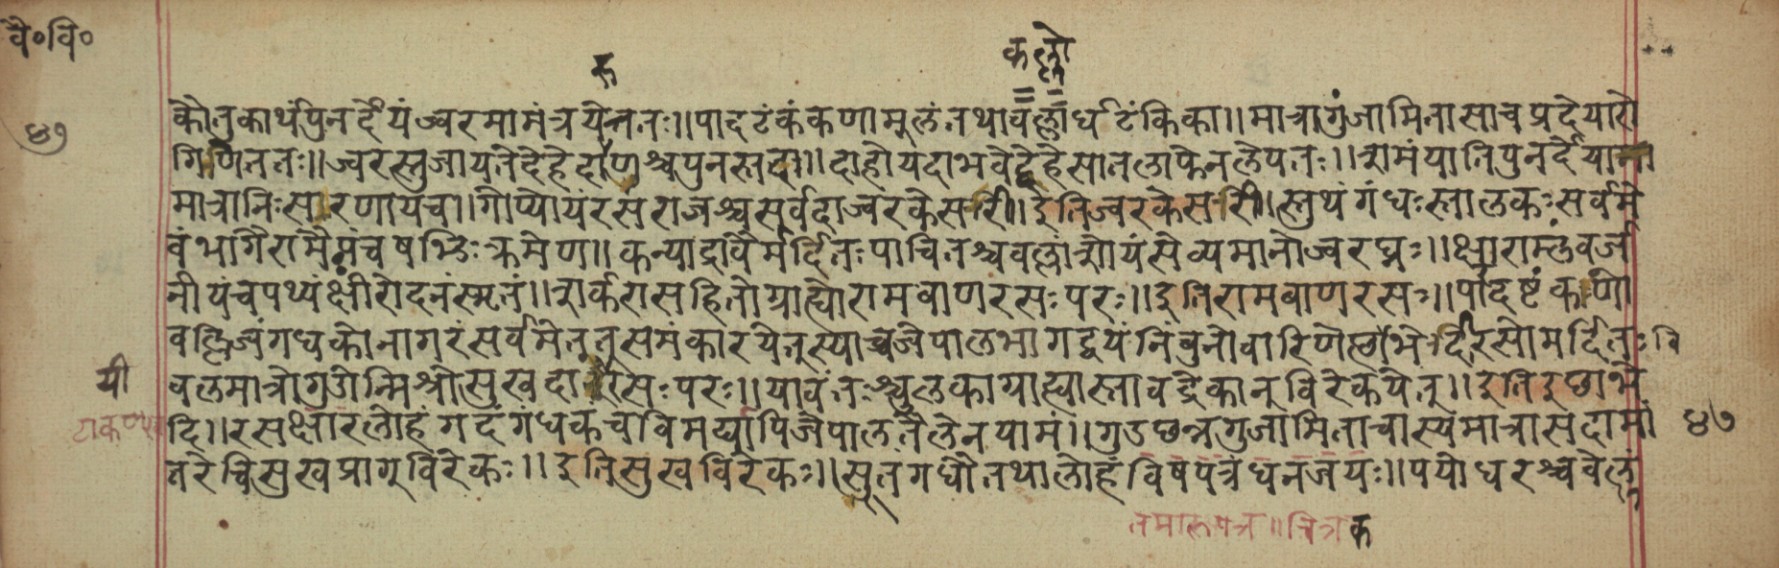 वै॰वि॰
क
कल्लो
४७
कौतुकार्थंपुनर्देयंज्वरमामंत्रयेत्ततः॥पादटंकंकणामूलंतथावल्लार्धटंकिका॥मात्रागुंजामितासाचप्रदेयारो
गिणेततः॥ज्वरस्तुजायतेदेहेदाणश्चपुनस्तदा॥दाहोयदाभवेद्देहेसातलाफेनलेपतः॥शमंयातिपुनर्देया
मात्रानिःसारणायच॥गोप्योयंरसराजश्चसर्वदाज्वरकेसरी॥इतिज्वरकेसरी॥स्तुथंगंधःस्तालकःसर्वमे
वंभागैरामैमंचषभिःक्रमेण॥कन्याद्रावैर्मर्दितःपाचितश्चवल्लांशोयंसेव्यमानोज्वरघ्नः॥क्षाराम्लंवर्ज
नीयंचपथ्यंक्षीरोदनंस्मृतं॥शर्करासहितोग्राह्योरामबाणरसःपरः॥इतिरामबाणरसः॥पादष्टंकणो
वह्निजंगधकोनागरंसर्वमेतत्तुसमंकारयेत्तुस्याच्चजैपालभागद्वयंनिंबुनोवारिणेछाभेदिरसोमर्दितःवि
यी
वलमात्रोगुडोन्मिश्रीसुखदारसःपरः॥यावंतश्चुलकाग्राह्यास्तावद्रेकान्विरेकयेत्॥इतिइछाभे
टाकण्ष
दि॥रसक्षारलोहंगदंगंधकंचविमर्द्यापिजैपालतैलेनयामं॥गुडछन्नगुंजामिताचास्यमात्रासदामां
४७
तरेचिसुखप्रागविरेकः॥इतिसुखविरेकः॥सूतंगंधौतथालोहंविषपत्रंधनंजयः॥पयोधरश्चवेल्लं
तमालपत्र॥चित्रक